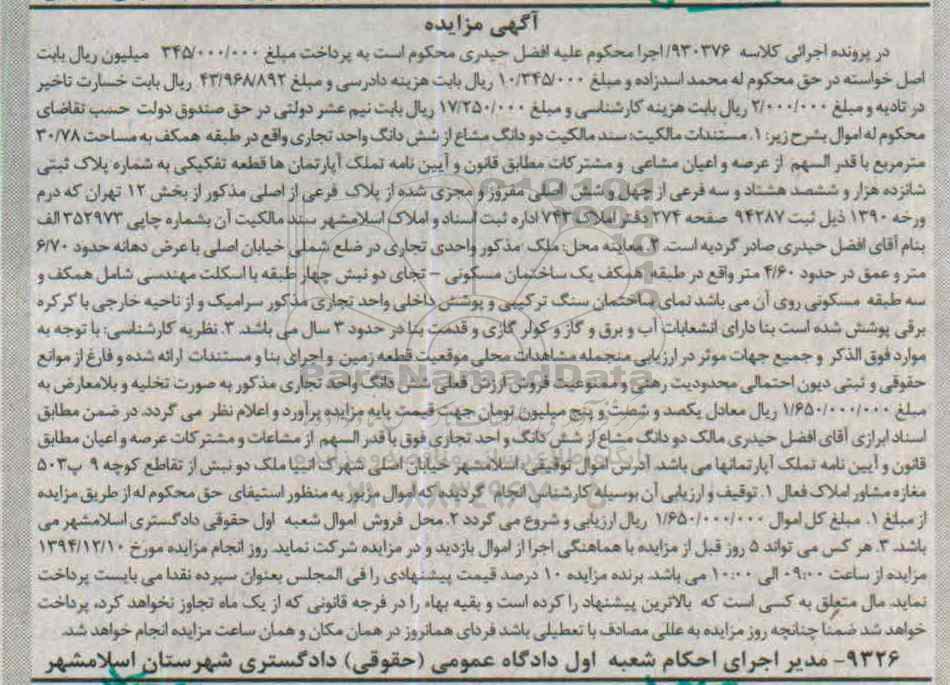 آگهی مزایده
در پرونده اجرائی کلاسه ۹۳۰۳۷۶/اجرا محکوم علیه افضل حیدری محکوم است به پرداخت مبلغ ۳۴۵/۰۰۰/۰۰۰ میلیون ریال بابت
اصل خواسته در حق محکوم له محمد اسدزاده و مبلغ ۱۰/۳۴۵/۰۰۰ ریال بابت هزینه دادرسی و مبلغ ۴۳/۹۶۸/۸۹۲ ریال بابت خسارت تاخیر
در تادیه و مبلغ ۲/۰۰۰/۰۰۰ ریال بابت هزینه کارشناسی و مبلغ ۱۷/۲۵۰/۰۰۰ ریال بابت نیم عشر دولتی در حق صندوق دولت حسب تقاضای
محکوم له اموال بشرح زیر: ۱. مستندات مالکیت: سند مالکیت دو دانگ مشاع از شش دانگ واحد تجاری واقع در طبقه همکف به مساحت ۳۰/۷۸
مترمربع با قدر السهم از عرصه و اعیان مشاعی و مشترکات مطابق قانون و آیین نامه تملک آپارتمان ها قطعه تفکیکی به شماره پلاک ثبتی
شانزده هزار و ششصد هشتاد و سه فرعی از چهل و شش اصلی مفروز و مجزی شده از پلاک فرعی از اصلی مذکور از بخش ۱۲ تهران که درم
ورخه ۱۳۹۰ ذیل ثبت ۹۴۲۸۷ صفحه ۲۷۴ دفتر املاک ۷۴۳ اداره ثبت اسناد و املاک اسلامشهر سند مالکیت آن بشماره چاپی ۳۵۲۹۷۳ الف
بنام آقای افضل حیدری صادر گردیه است. ۲. معاینه محل: ملک مذکور واحدی تجاری در ضلع شملی خیابان اصلی با عرض دهانه حدود ۶/۷۰
متر و عمق در حدود ۴/۶۰ متر واقع در طبقه همکف یک ساختمان مسکونی - تجای دو نبش چهار طبقه با اسکلت مهندسی شامل همکف و
سه طبقه مسکونی روی آن می باشد نمای ساختمان سنگ ترکیبی و پوشش داخلی واحد تجاری مذکور سرامیک و از ناحیه خارجی با کرکره
برقی پوشش شده است بنا دارای انشعابات آب و برق و گاز و کولر گازی و قدمت بنا در حدود ۳ سال می باشد. ۳. نظریه کارشناسی: با توجه به
موارد فوق الذکر و جمیع جهات موثر در ارزیابی منجمله مشاهدات محلی موقعیت قطعه زمین و اجرای بنا و مستندات ارائه شده و فارغ از موانع
حقوقی و ثبتی دیون احتمالی محدودیت رهنی و ممنوعیت فروش ارزش فعلی شش دانگ واحد تجاری مذکور به صورت تخلیه و بلامعارض به
مبلغ ۱/۶۵۰/۰۰۰/۰۰۰ ریال معادل یکصد و شصت و پنج میلیون تومان جهت قیمت پایه مزایده برآورد و اعلام نظر می گردد. در ضمن مطابق
اسناد ابرازی آقای افضل حیدری مالک دو دانگ مشاع از شش دانگ و احد تجاری فوق با قدر السهم از مشاعات و مشترکات عرصه و اعیان مطابق
قانون و آیین نامه تملک آپارتمانها می باشد. آدرس اموال توقیفی: اسلامشهر خیابان اصلی شهرک انبیا ملک دو نبش از تقاطع کوچه ۹ پ۵۰۳
مغازه مشاور املاک فعال ۱. توقیف و ارزیابی آن بوسیله کارشناس انجام گردیده که اموال مزبور به منظور استیفای حق محکوم له از طریق مزایده
از مبلغ ۱. مبلغ کل اموال ۱/۶۵۰/۰۰۰/۰۰۰ ریال ارزیابی و شروع می گردد ۲. محل فروش اموال شعبه اول حقوقی دادگستری اسلامشهر می
باشد. ۳. هر کس می تواند ۵ روز قبل از مزایده با هماهنگی اجرا از اموال بازدید و در مزایده شرکت نماید. روز انجام مزایده مورخ ۱۳۹۴/۱۲/۱۰
مزایده از ساعت ۰۹:۰۰ الی ۱۰:۰۰ می باشد. برنده مزایده ۱۰ درصد قیمت پیشنهادی را فی المجلس بعنوان سپرده نقدا می بایست پرداخت
نماید. مال متعلق به کسی است که بالاترین پیشنهاد را کرده است و بقیه بهاء را در فرجه قانونی که از یک ماه تجاوز نخواهد کرد، پرداخت
خواهد شد ضمنا چنانچه روز مزایده به عللی مصادف با تعطیلی باشد فردای همانروز در همان مکان و همان ساعت مزایده انجام خواهد شد.
۹۳۲۶- مدیر اجرای احکام شعبه اول دادگاه عمومی (حقوقی) دادگستری شهرستان اسلامشهر
ParsNamadData